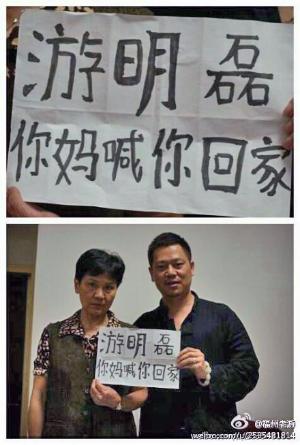 游明磊
你妈喊你回家
游明磊
你妈喊你回家
@福州李游
weibo.com/u/2535481814